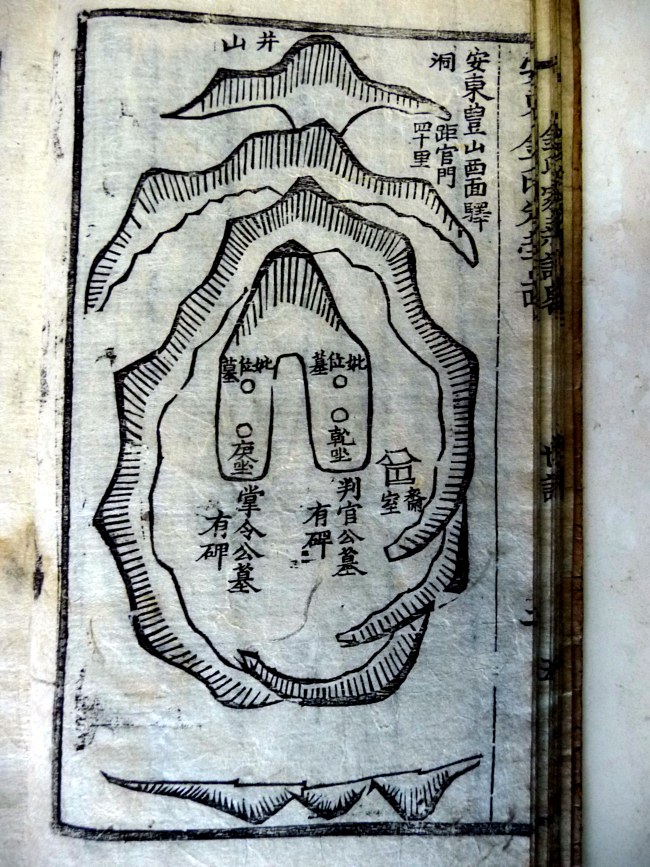 安東豊山西面驛
洞
距官門
四十里
井山
妣位墓
妣位墓
乾坐
庚坐
齋室
判官公墓
有碑
掌令公墓
有碑